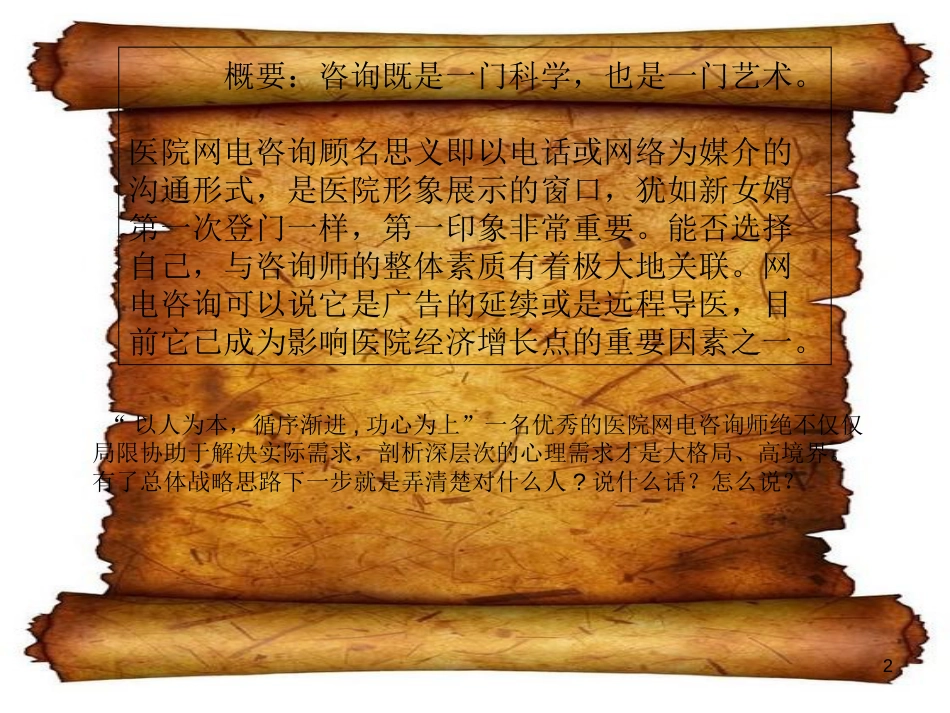 概要：咨询既是一门科学，也是一门艺术。
医院网电咨询顾名思义即以电话或网络为媒介的
沟通形式，是医院形象展示的窗口，犹如新女婿
第一次登门一样，第一印象非常重要。能否选择
自己，与咨询师的整体素质有着极大地关联。网
电咨询可以说它是广告的延续或是远程导医，目
前它已成为影响医院经济增长点的重要因素之一。
“ 以人为本，循序渐进 , 功心为上”一名优秀的医院网电咨询师绝不仅仅
局限协助于解决实际需求，剖析深层次的心理需求才是大格局、高境界。
有了总体战略思路下一步就是弄清楚对什么人 ? 说什么话？怎么说？
2